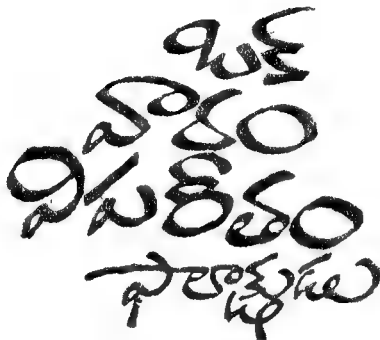 వారం
విపరీతం
ఫాలాక్షుడు